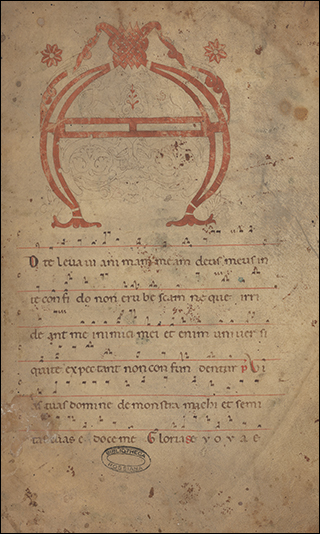 A
D te levavi animam meam deus meus in
te confido non erubescam neque irri
deant me inimici mei etenim universi
qui te expectant non confundentur Vi
as tuas domine demonstra michi et semi
tas tuas edoce me Gloria se v o v a e
BIBLIOTHECA